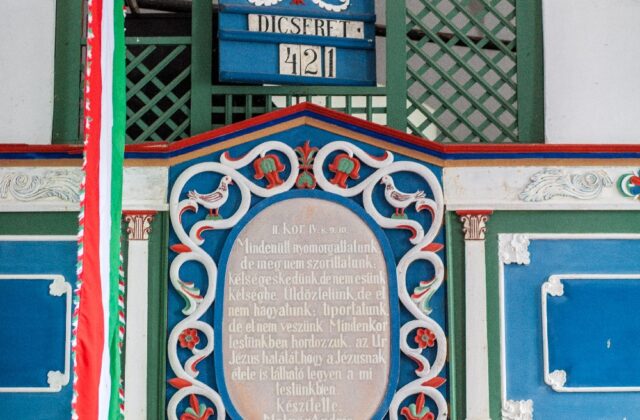 DICSÉRET
421
II. KOR. IV. 8. 9. 10.
Mindenütt nyomorgattatunk,
de meg nem szoríttatunk;
kétségeskedünk, de nem esünk
kétségbe. Üldöztetünk, de el
nem hagyatunk; tiportatunk,
de el nem veszünk. Mindenkor
testünkben hordozzuk az Úr
Jézus halálát, hogy a Jézusnak
élete is látható legyen a mi
testünkben.
Készítette